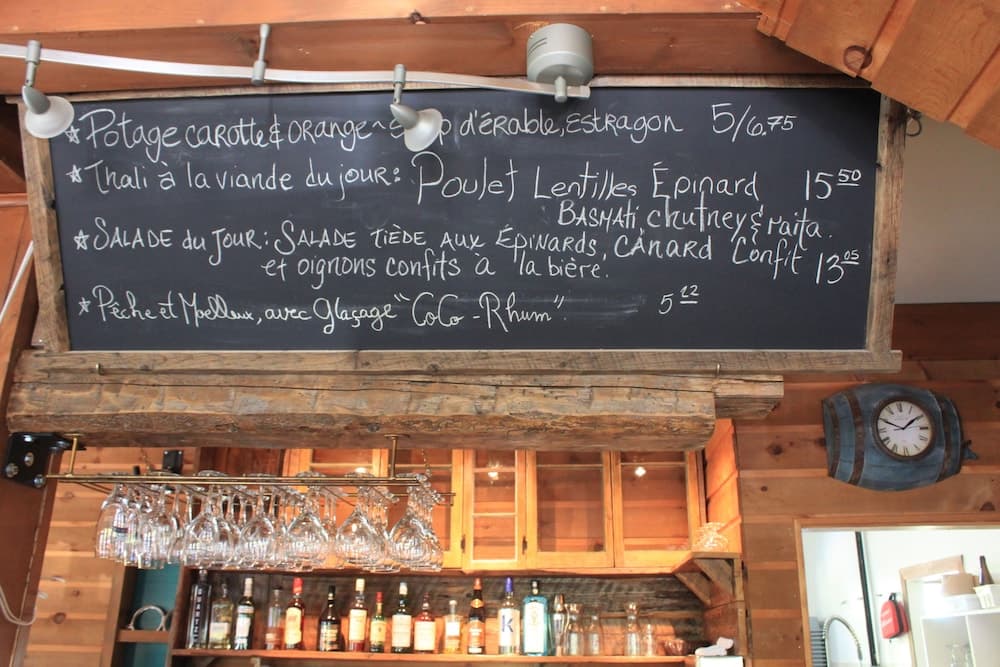 Potage carotte & orange ~ d'érable, Estragon 5/6.75
Thali à la viande du jour: Poulet Lentilles Épinard 15 50
BASMATi, chutney & Raita.
SALADE du JOUR: SALADE TIÈDE AUX ÉPINARDS, CANARD Confit
et oignons confits à la bière. 13 05
Pêche et Moelleux, avec glaçage "CoCo-Rhum". 5 12